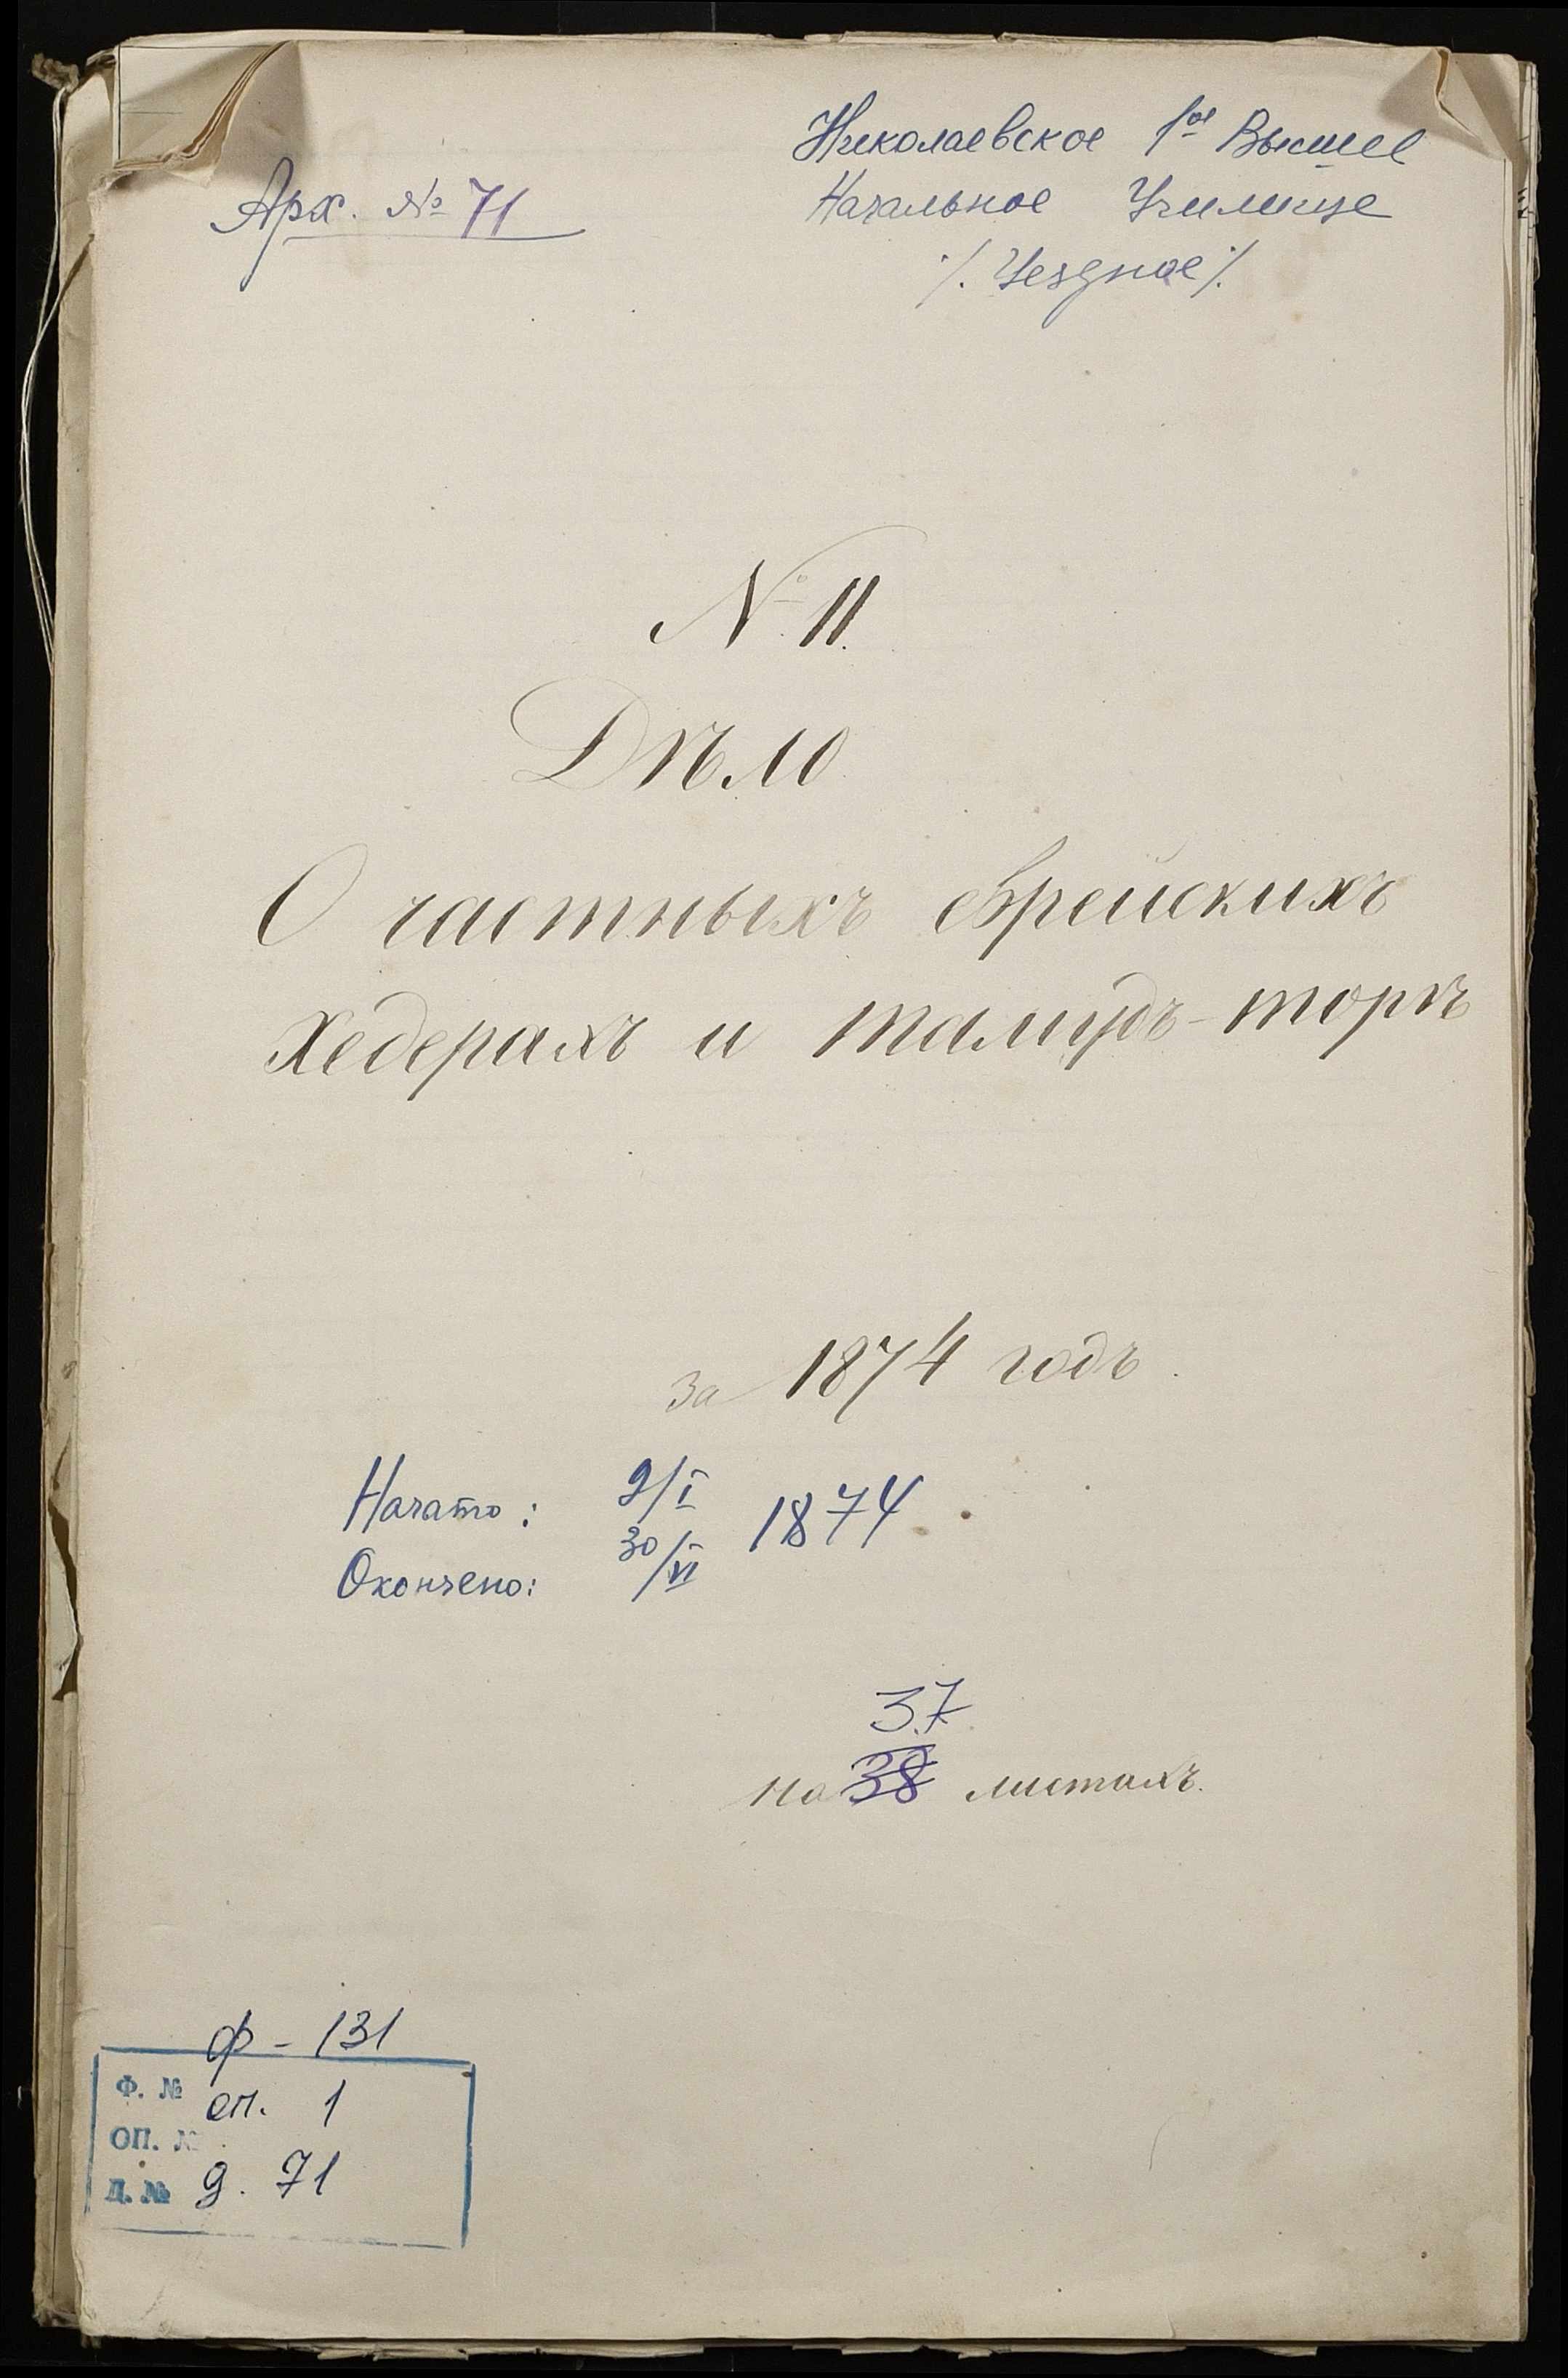 Николаевское 1ое Высшее
Арх. № 71
Начальное Училище
/. Уездное /.
№ 11.
Дѣло
О частныхъ еврейскихъ
хедерахъ и талмудъ-торѣ
за 1874 годъ.
Начато: 9/I 1874
Окончено: 30/VI
37
на 38 листахъ.
ф - 131
Ф. № оп. 1
ОП. №
Д. № д. 71